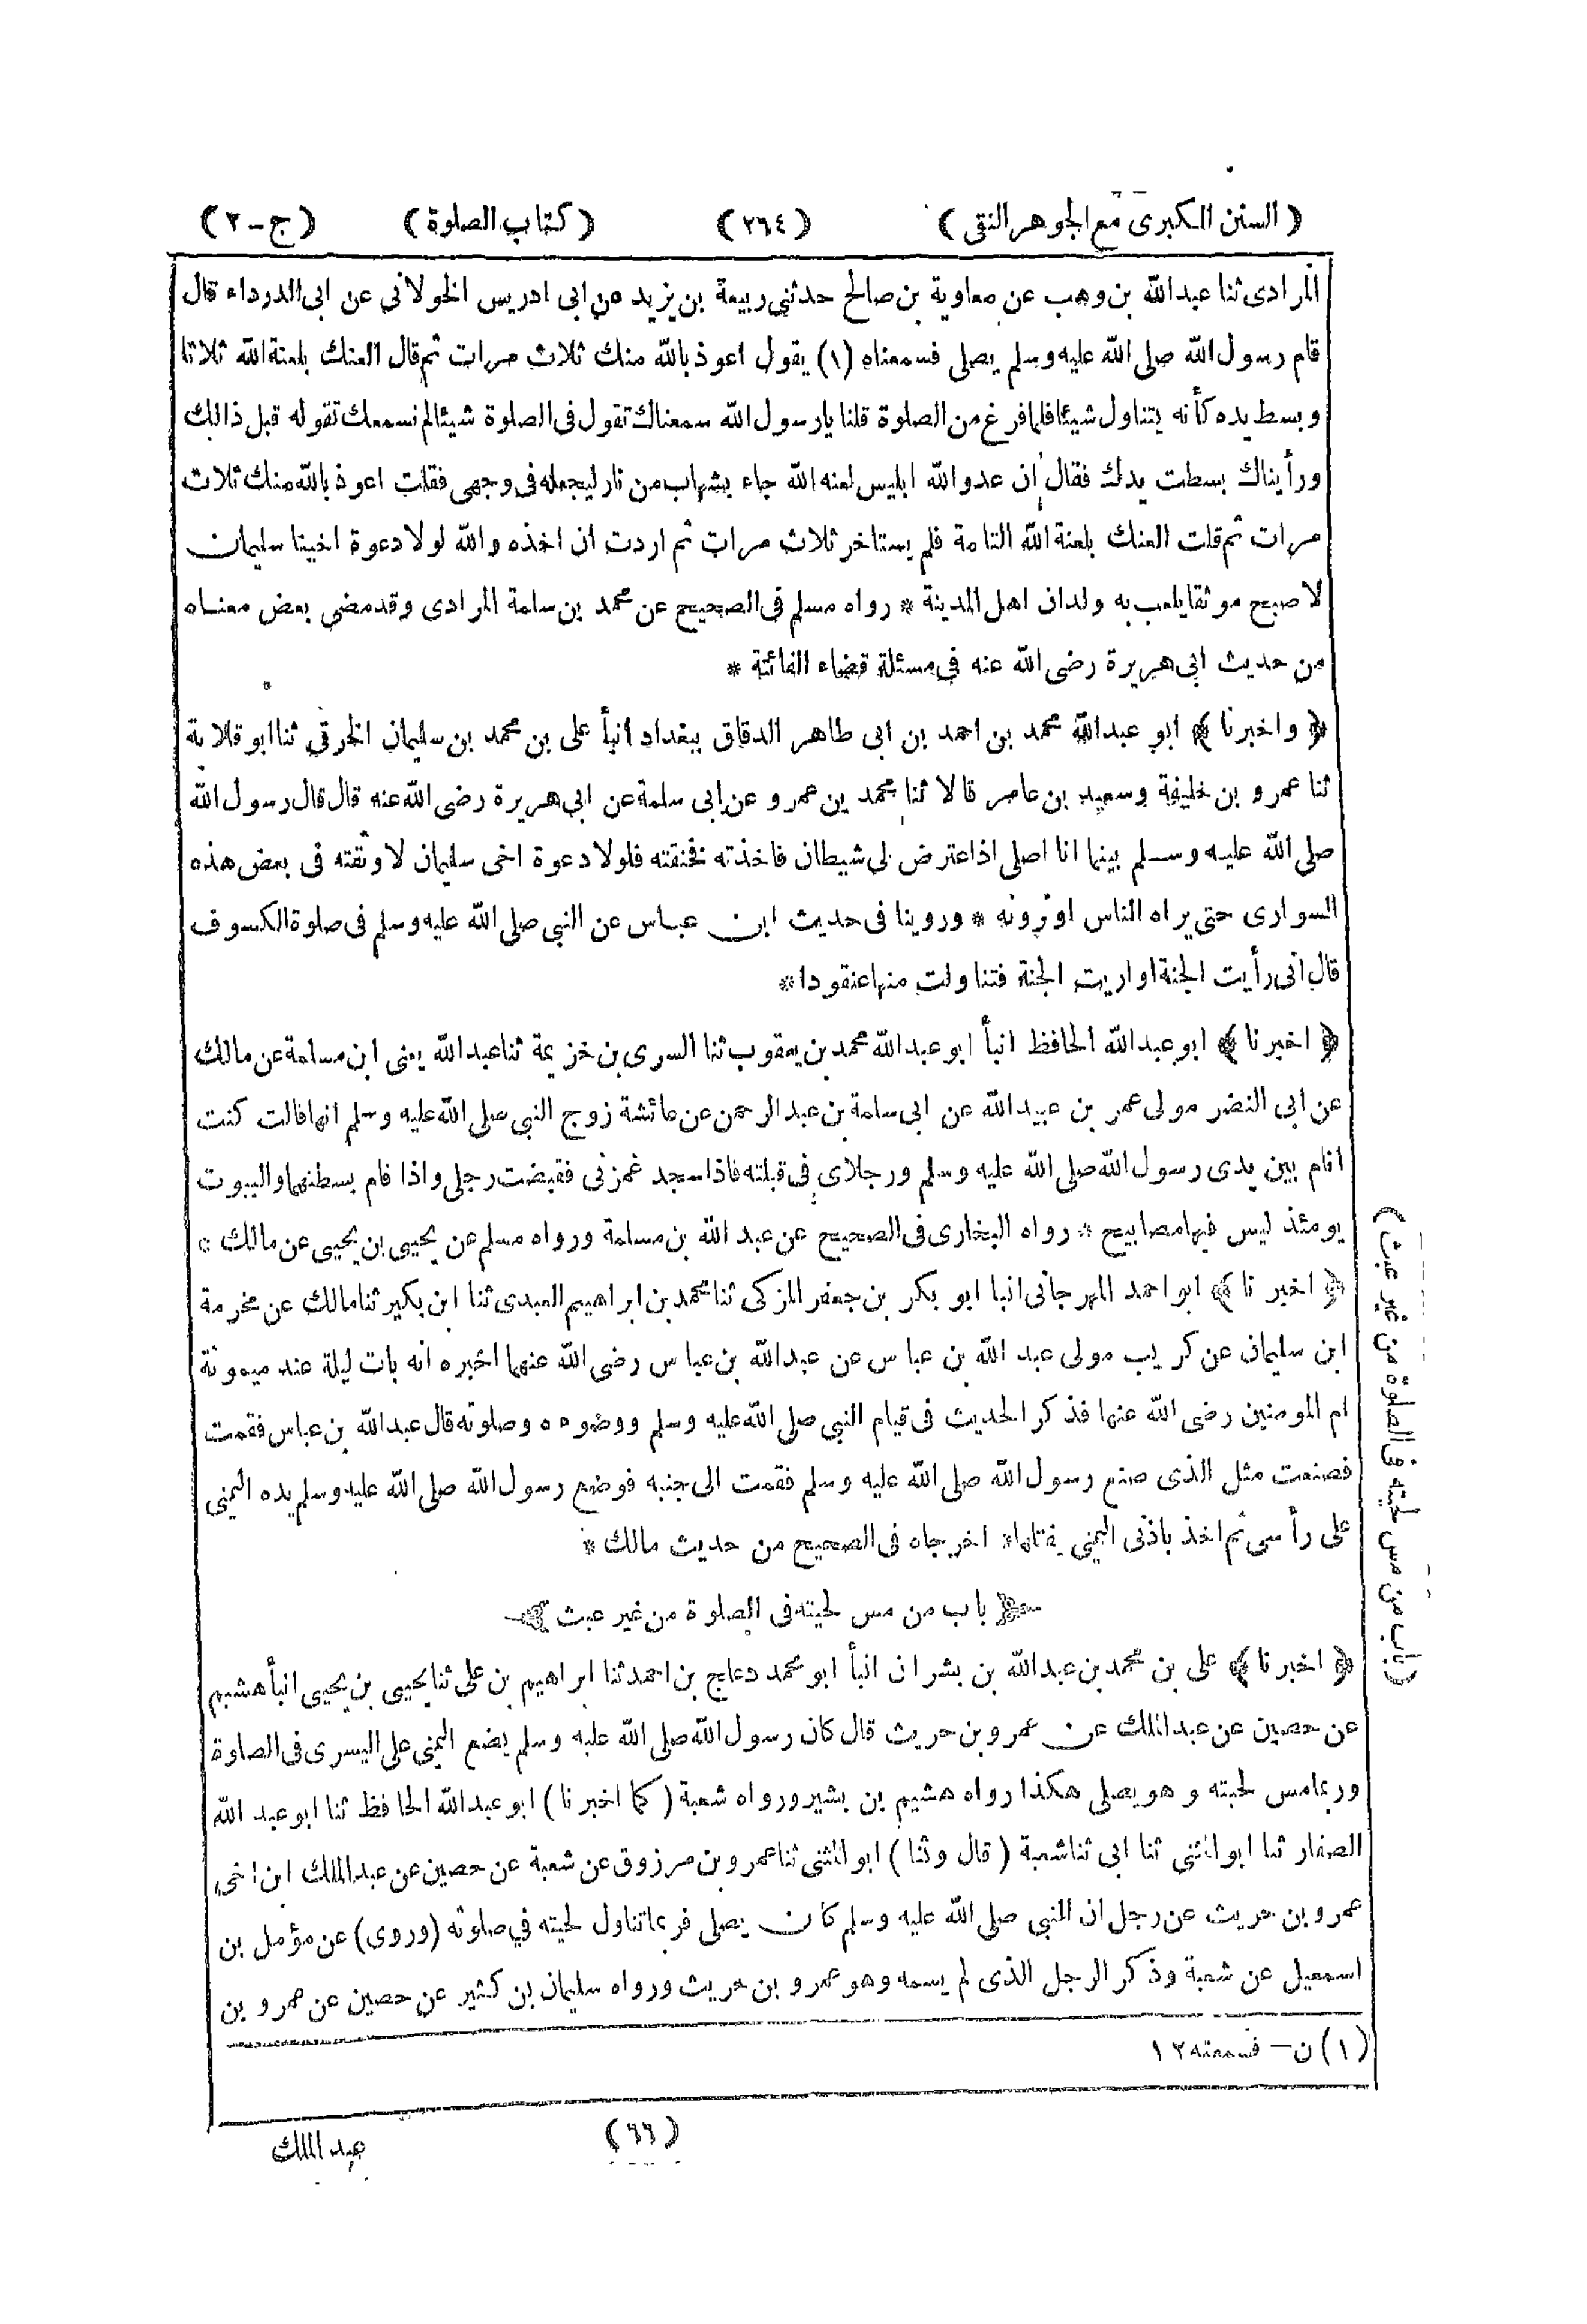 ( السنن الكبرى مع الجوهر النقى ) ( ٢٦٤ ) ( كتاب الصلوة ) ( ج - ٢ )
المرادى ثنا عبد الله بن وهب عن معاوية بن صالح حدثنى ربيعة بن يزيد عن ابى ادريس الخولانى عن ابى الدرداء قال
قام رسول الله صلى الله عليه وسلم يصلى فسمعناه (١) يقول اعوذ بالله منك ثلاث مرات ثم قال العنك بلعنة الله ثلاثا
وبسط يده كأنه يتناول شيئا فلما فرغ من الصلوة قلنا يا رسول الله سمعناك تقول فى الصلوة شيئا لم نسمعك تقوله قبل ذالك
ورأيناك بسطت يدك فقال ان عدو الله ابليس لعنه الله جاء بشهاب من نار ليجعله فى وجهى فقلت اعوذ بالله منك ثلاث
مرات ثم قلت العنك بلعنة الله التامة فلم يستاخر ثلاث مرات ثم اردت ان اخذه والله لولا دعوة اخينا سليمان
لاصبح موثقا يلعب به ولدان اهل المدينة * رواه مسلم فى الصحيح عن محمد بن سلمة المرادى وقد مضى بعض معناه
من حديث ابى هريرة رضى الله عنه فى مسئلة قضاء الفائتة *
﴿ واخبرنا ﴾ ابو عبد الله محمد بن احمد بن ابى طاهر الدقاق ببغداد أنبأ على بن محمد بن سليمان الخرقى ثنا ابو قلابة
ثنا عمرو بن خليفة وسعيد بن عامر قالا ثنا محمد بن عمرو عن ابى سلمة عن ابى هريرة رضى الله عنه قال قال رسول الله
صلى الله عليه وسلم بينما انا اصلى اذ اعترض لى شيطان فاخذته فخنقته فلولا دعوة اخى سليمان لاوثقته فى بعض هذه
السوارى حتى يراه الناس او ترونه * وروينا فى حديث ابن عباس عن النبى صلى الله عليه وسلم فى صلوة الكسوف
قال انى رأيت الجنة او اريت الجنة فتناولت منها عنقودا *
﴿ اخبرنا ﴾ ابو عبد الله الحافظ انبأ ابو عبد الله محمد بن يعقوب ثنا السرى بن خزيمة ثنا عبد الله يعنى ابن مسلمة عن مالك
عن ابى النضر مولى عمر بن عبيد الله عن ابى سلمة بن عبد الرحمن عن عائشة زوج النبى صلى الله عليه وسلم انها قالت كنت
انام بين يدى رسول الله صلى الله عليه وسلم ورجلاى فى قبلته فاذا سجد غمزنى فقبضت رجلى واذا قام بسطتهما والبيوت
يومئذ ليس فيها مصابيح * رواه البخارى فى الصحيح عن عبد الله بن مسلمة ورواه مسلم عن يحيى بن يحيى عن مالك *
﴿ اخبرنا ﴾ ابو احمد المهرجانى انبا ابو بكر بن جعفر المزكى ثنا محمد بن ابراهيم العبدى ثنا ابن بكير ثنا مالك عن مخرمة
ابن سليمان عن كريب مولى عبد الله بن عباس عن عبد الله بن عباس رضى الله عنهما اخبره انه بات ليلة عند ميمونة
ام المومنين رضى الله عنها فذكر الحديث فى قيام النبى صلى الله عليه وسلم ووضوءه وصلوته قال عبد الله بن عباس فقمت
فصنعت مثل الذى صنع رسول الله صلى الله عليه وسلم فقمت الى جنبه فوضع رسول الله صلى الله عليه وسلم يده اليمنى
على رأسى ثم اخذ باذنى اليمنى يفتلها * اخرجاه فى الصحيح من حديث مالك *
باب من مس لحيته فى الصلوة من غير عبث
﴿ اخبرنا ﴾ على بن محمد بن عبد الله بن بشران انبأ ابو محمد دعلج بن احمد ثنا ابراهيم بن على ثنا يحيى بن يحيى انبأ هشيم
عن حصين عن عبد الملك عن عمرو بن حريث قال كان رسول الله صلى الله عليه وسلم يضع اليمنى على اليسرى فى الصلوة
وربما مس لحيته و هو يصلى هكذا رواه هشيم بن بشير ورواه شعبة ( كما اخبرنا ) ابو عبد الله الحافظ ثنا ابو عبد الله
الصفار ثنا ابو المثنى ثنا ابى ثنا شعبة ( قال وثنا ) ابو المثنى ثنا عمرو بن مرزوق عن شعبة عن حصين عن عبد الملك ابن اخى
عمرو بن حريث عن رجل ان النبى صلى الله عليه وسلم كان يصلى فربما تناول لحيته في صلوته (وروى) عن مؤمل بن
اسمعيل عن شعبة وذكر الرجل الذى لم يسمه وهو عمرو بن حريث ورواه سليمان بن كثير عن حصين عن عمرو بن
(١) ن - فسمعته ١٢
(٦٦)
عبد الملك
( باب من مس لحيته فى الصلوة من غير عبث )